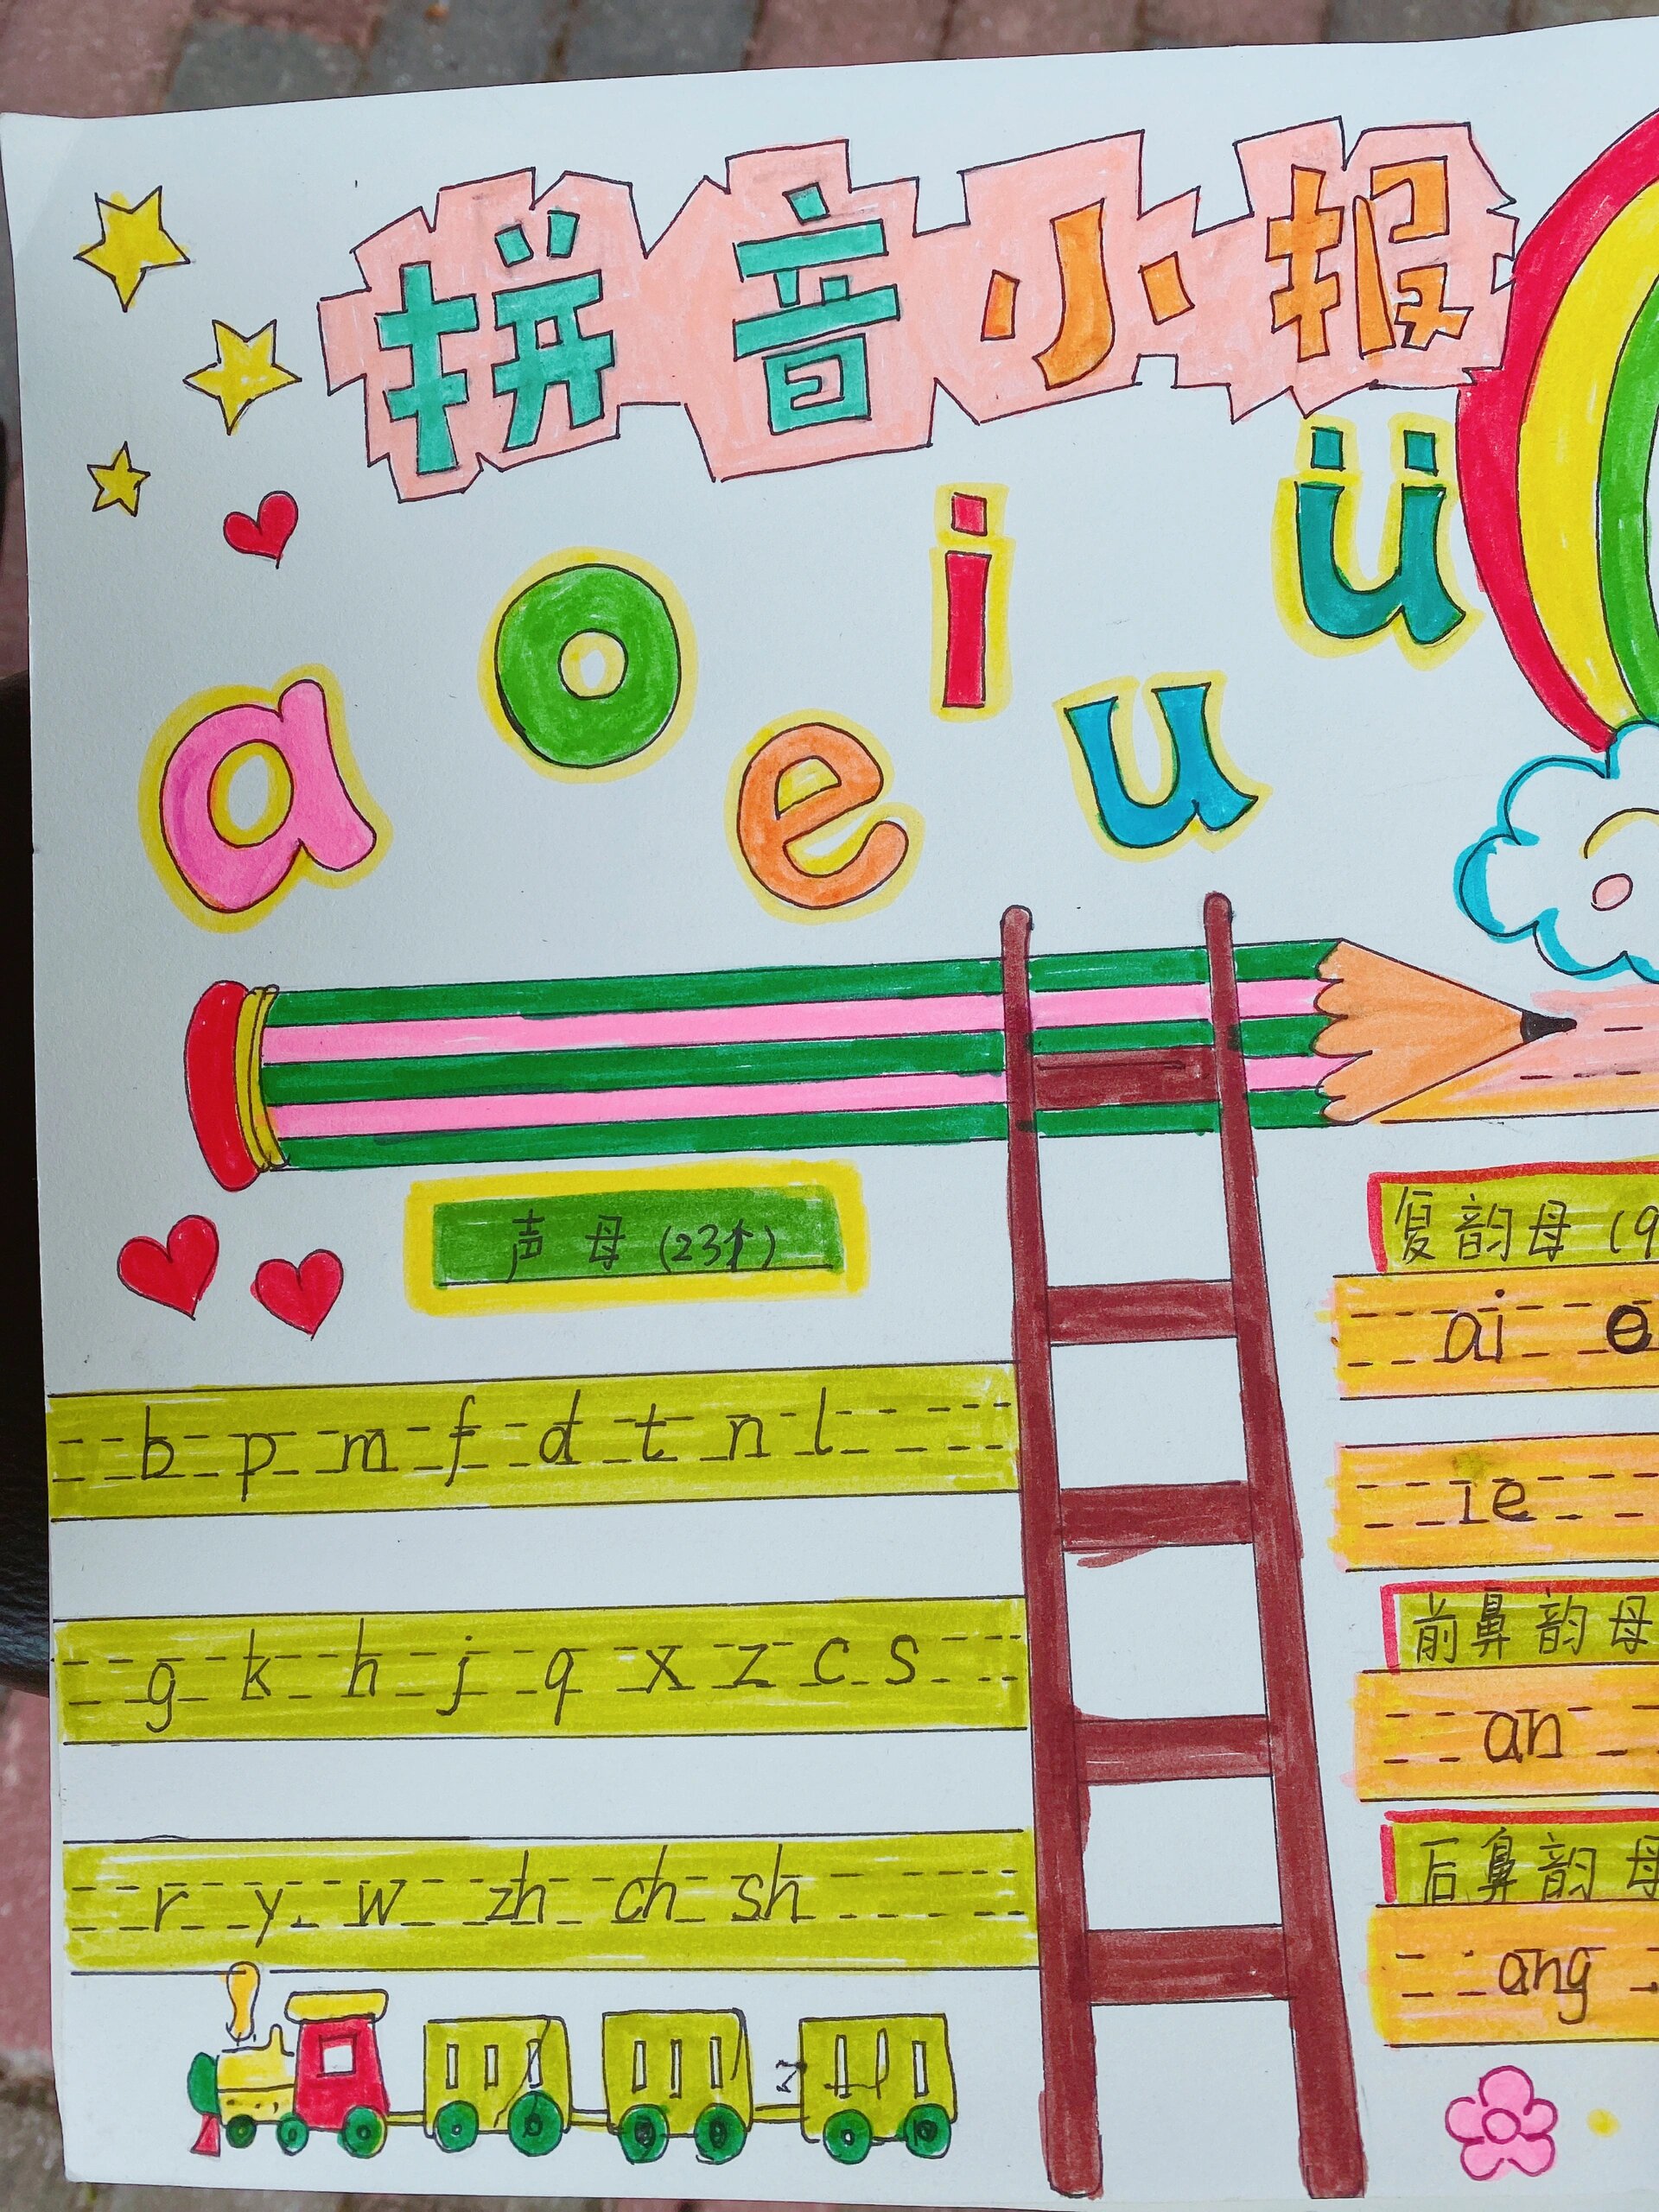 拼音小报
a o e i u ü
声母(23个)
b p m f d t n l
g k h j q x z c s
r y w zh ch sh
复韵母(9
ai e
ie
前鼻韵母
an
后鼻韵母
ang